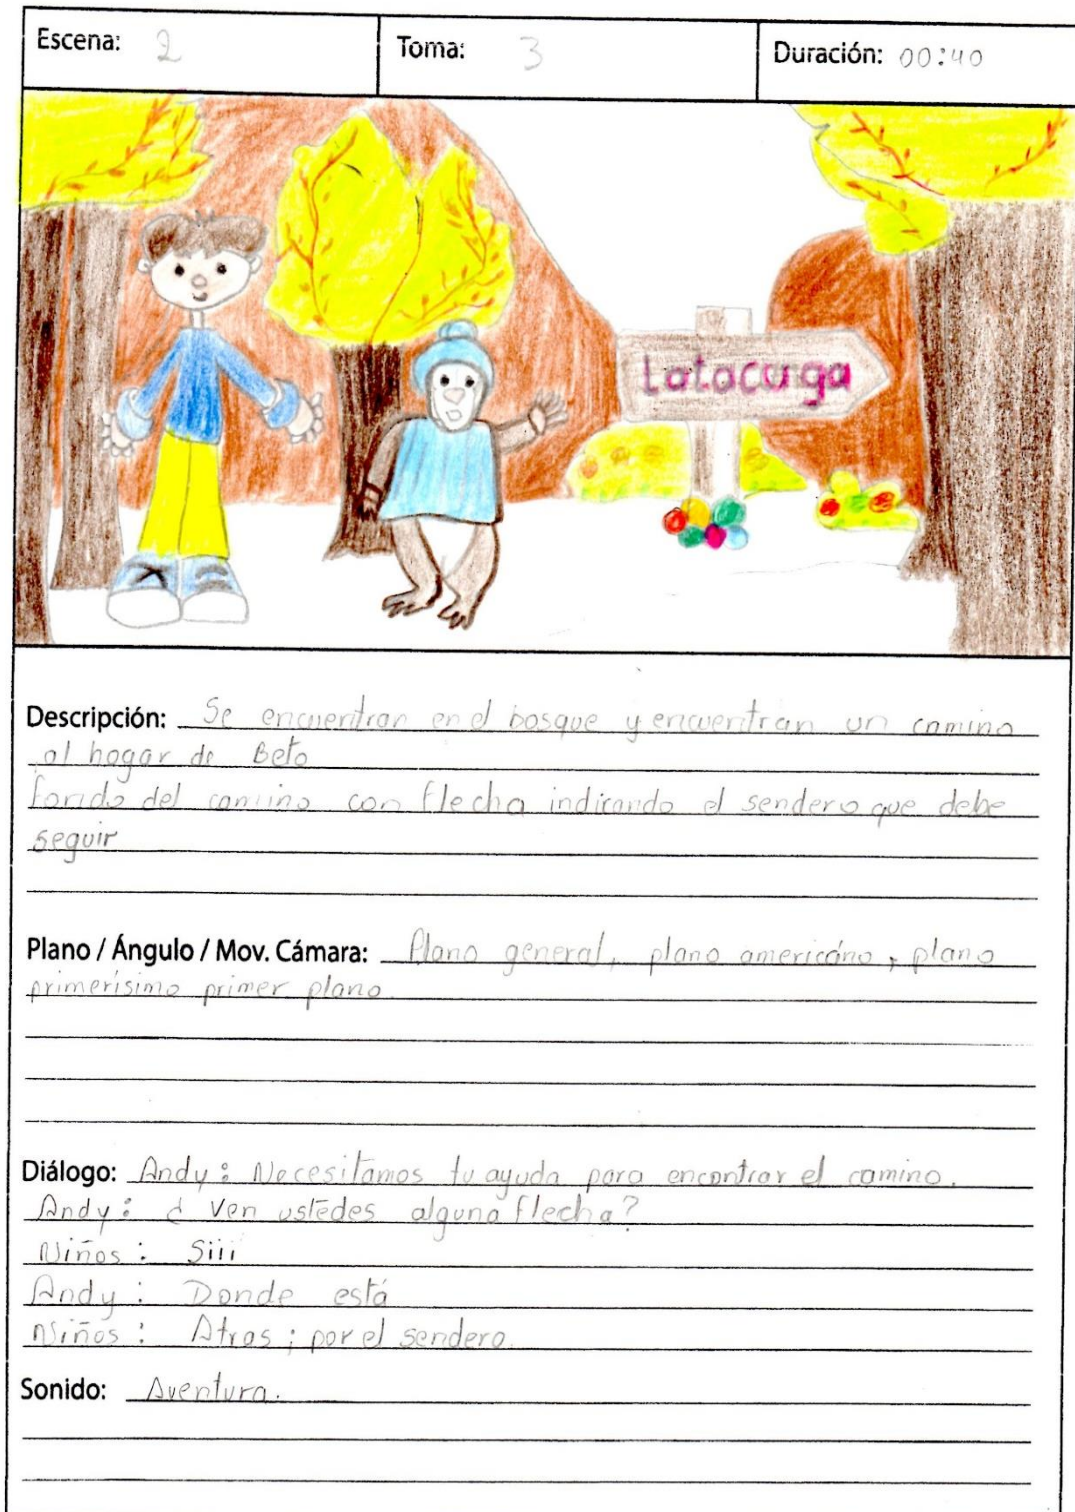 Escena: 2
Toma: 3
Duración: 00:40
Latacuga
Descripción: Se encuentran en el bosque y encuentran un camino
al hogar de Beto
fondo del camino con flecha indicando el sendero que debe
seguir
Plano / Ángulo / Mov. Cámara: Plano general, plano americáno, plano
primerísimo primer plano.
Diálogo: Andy: Necesitamos tu ayuda para encontrar el camino.
Andy: ¿ Ven ustedes alguna flecha?
Niños: Siii
Andy: Donde está
Niños: Atras; por el sendero.
Sonido: Aventura.